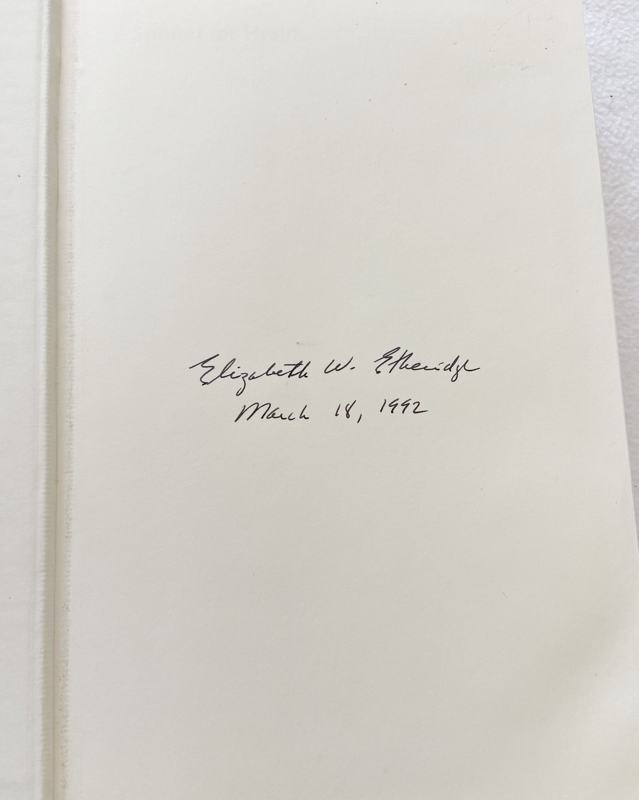 Elizabeth W. Etheridge
March 18, 1992